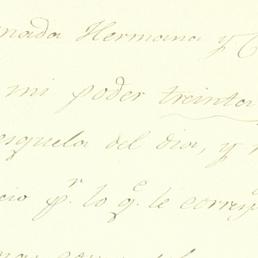 mada Hermana y C
mi poder treinta
esquela del dia, y r
cio pr. lo qe. te corresp